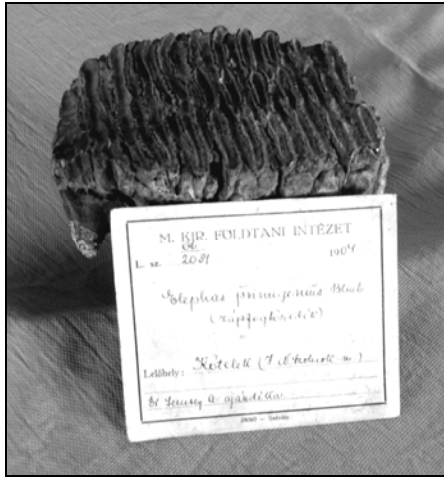 M. KIR. FÖLDTANI INTÉZET
Ob
L. sz. 2031 1904
Elephas primigenius Blmb
(zápfogtöredék)
Lelőhely: Kőtelek (J. N. Szolnok m.)
Dr Semsey A. ajándéka